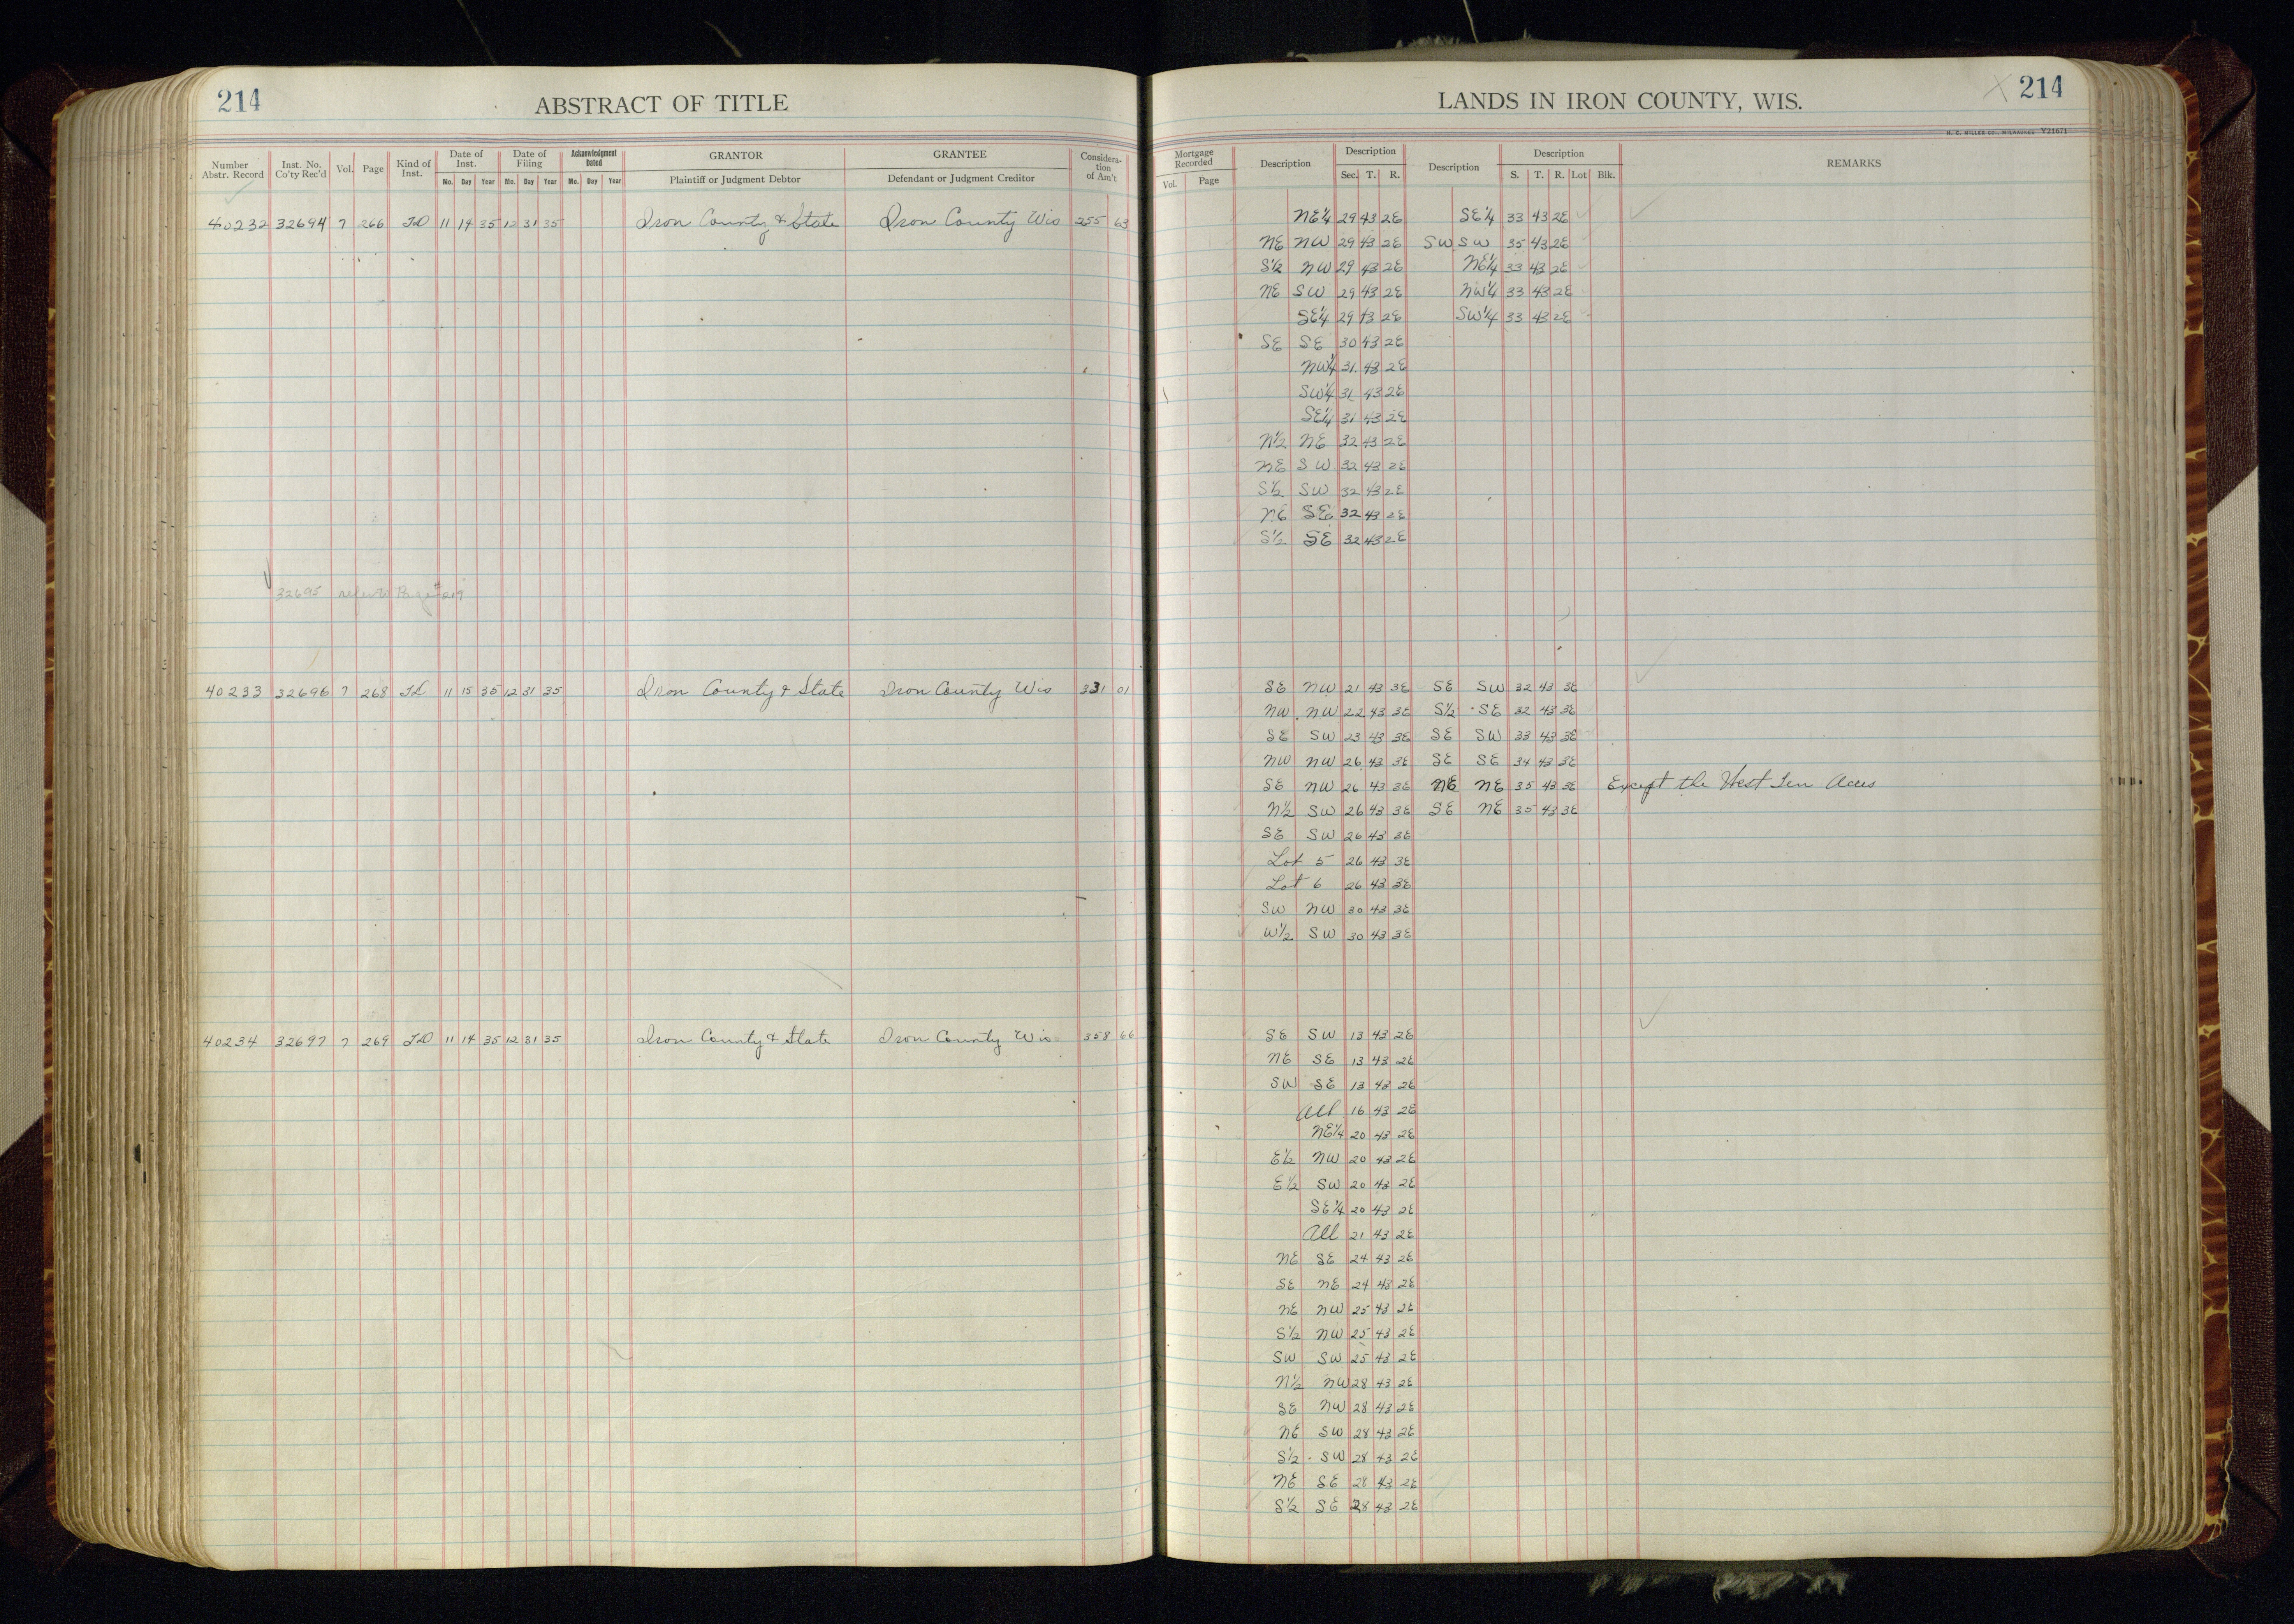 214 ABSTRACT OF TITLE
LANDS IN IRON COUNTY, WIS. X 214
H. C. MILLER CO., MILWAUKEE Y21671
Number Abstr. Record Inst. No. Co'ty Rec'd Vol. Page Kind of Inst. Date of Inst. Mo. Day Year Date of Filing Mo. Day Year Acknowledgment Dated Mo. Day Year GRANTOR Plaintiff or Judgment Debtor GRANTEE Defendant or Judgment Creditor Considera-tion of Am't
Mortgage Recorded Vol. Page Description Description Sec. T. R. Description Description S. T. R. Lot Blk. REMARKS
40232 32694 7 266 TD 11 14 35 12 31 35 Iron County & State Iron County Wis 255 63
NE¼ 29 43 2E SE¼ 33 43 2E
NE NW 29 43 2E SW SW 35 43 2E
S½ NW 29 43 2E NE¼ 33 43 2E
NE SW 29 43 2E NW¼ 33 43 2E
SE¼ 29 43 2E SW¼ 33 43 2E
SE SE 30 43 2E
NW¼ 31 43 2E
SW¼ 31 43 2E
SE¼ 31 43 2E
N½ NE 32 43 2E
NE SW 32 43 2E
S½ SW 32 43 2E
NE SE 32 43 2E
S½ SE 32 43 2E
32695 refer to Page #219
40233 32696 7 268 TD 11 15 35 12 31 35 Iron County & State Iron County Wis 331 01
SE NW 21 43 3E SE SW 32 43 3E
NW NW 22 43 3E S½ SE 32 43 3E
SE SW 23 43 3E SE SW 33 43 3E
NW NW 26 43 3E SE SE 34 43 3E
SE NW 26 43 3E NE NE 35 43 3E Except the West Ten Acres
N½ SW 26 43 3E SE NE 35 43 3E
SE SW 26 43 3E
Lot 5 26 43 3E
Lot 6 26 43 3E
SW NW 30 43 3E
W½ SW 30 43 3E
40234 32697 7 269 TD 11 14 35 12 31 35 Iron County & State Iron County Wis 358 66
SE SW 13 43 2E
NE SE 13 43 2E
SW SE 13 43 2E
All 16 43 2E
NE¼ 20 43 2E
E½ NW 20 43 2E
E½ SW 20 43 2E
SE¼ 20 43 2E
All 21 43 2E
NE SE 24 43 2E
SE NE 24 43 2E
NE NW 25 43 2E
S½ NW 25 43 2E
SW SW 25 43 2E
N½ NW 28 43 2E
SE NW 28 43 2E
NE SW 28 43 2E
S½ SW 28 43 2E
NE SE 28 43 2E
S½ SE 28 43 2E